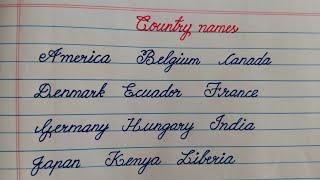 Country names
America Belgium Canada
Denmark Ecuador France
Germany Hungary India
Japan Kenya Liberia